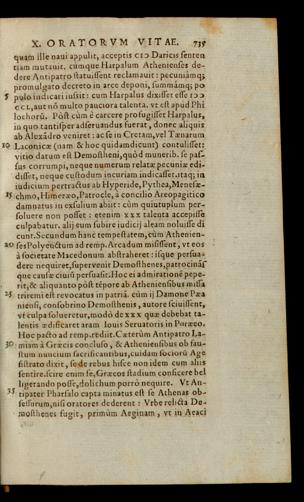 X. ORATORVM VITAE. 735
quam ille naui appulit, acceptis CIↃ Daricis senten
tiam mutauit. cumque Harpalum Athenienses de-
dere Antipatro statuissent reclamauit: pecuniámq;
promulgato decreto in arce deponi, summámq; po
5 pulo indicari iussit: cum Harpalus dixisset esse IↃCC
CCL, aut nò multo pauciora talenta. vt est apud Phi
lochorū. Pòst cùm è carcere profugisset Harpalus,
in quo tantisper adseruandus fuerat, donec aliquis
ab Alexādro veniret: ac se in Cretam, vel Tænarum
10 Laconicæ (nam & hoc quidam dicunt) contulisset:
vitio datum est Demostheni, quòd muneribº se pas-
sus corrumpi, neque numerum relatæ pecuniæ edi-
disset, neque custodum incuriam indicasset. itaq; in
iudicium pertractus ab Hyperide, Pythea, Menesæ-
15 chmo, Himeræo, Patrocle, à concilio Areopagitico
damnatus in exsulium abiit: cùm quintuplum per-
soluere non posset: etenim XXX talenta accepisse
culpabatur. alij eum subire iudicij aleam noluisse di
cunt. Secundum hanc tempestatem, cùm Athenien-
20 ses Polyeuctum ad remp. Arcadum misissent, vt eos
à societate Macedonum abstraheret: isque persua-
dere nequiret, superuenit Demosthenes, patrocinās
que causæ eiusis persuasit. Hoc ei admirationē pepe-
rit, & aliquanto pòst tēpore ab Atheniensibus missa
25 triremi est reuocatus in patriā. cùm ij Damone Pæa
niensi, consobrino Demosthenis, autore sciuissent,
vt culpa solueretur, modò de XXX quæ debebat ta-
lentis ædificaret aram Iouis Seruatoris in Piræeo.
Hoc pacto ad remp. rediit. Cæterùm Antipatro La-
30 miam à Græcis concluso, & Atheniensibus ob fau-
stum nuncium sacrificantibus, cuidam sociorū Age
sistrato dixit, se de rebus hisce non idem cum aliis
sentire. scire enim se, Græcos stadium conficere bel
ligerando posse, dolichum porrò nequire. Vt An-
35 tipater Pharsalo capta minatus est se Athenas ob-
sessurum, nisi oratores dederent: Vrbe relicta De-
mosthenes fugit, primùm Aeginam, vt in Aeaci